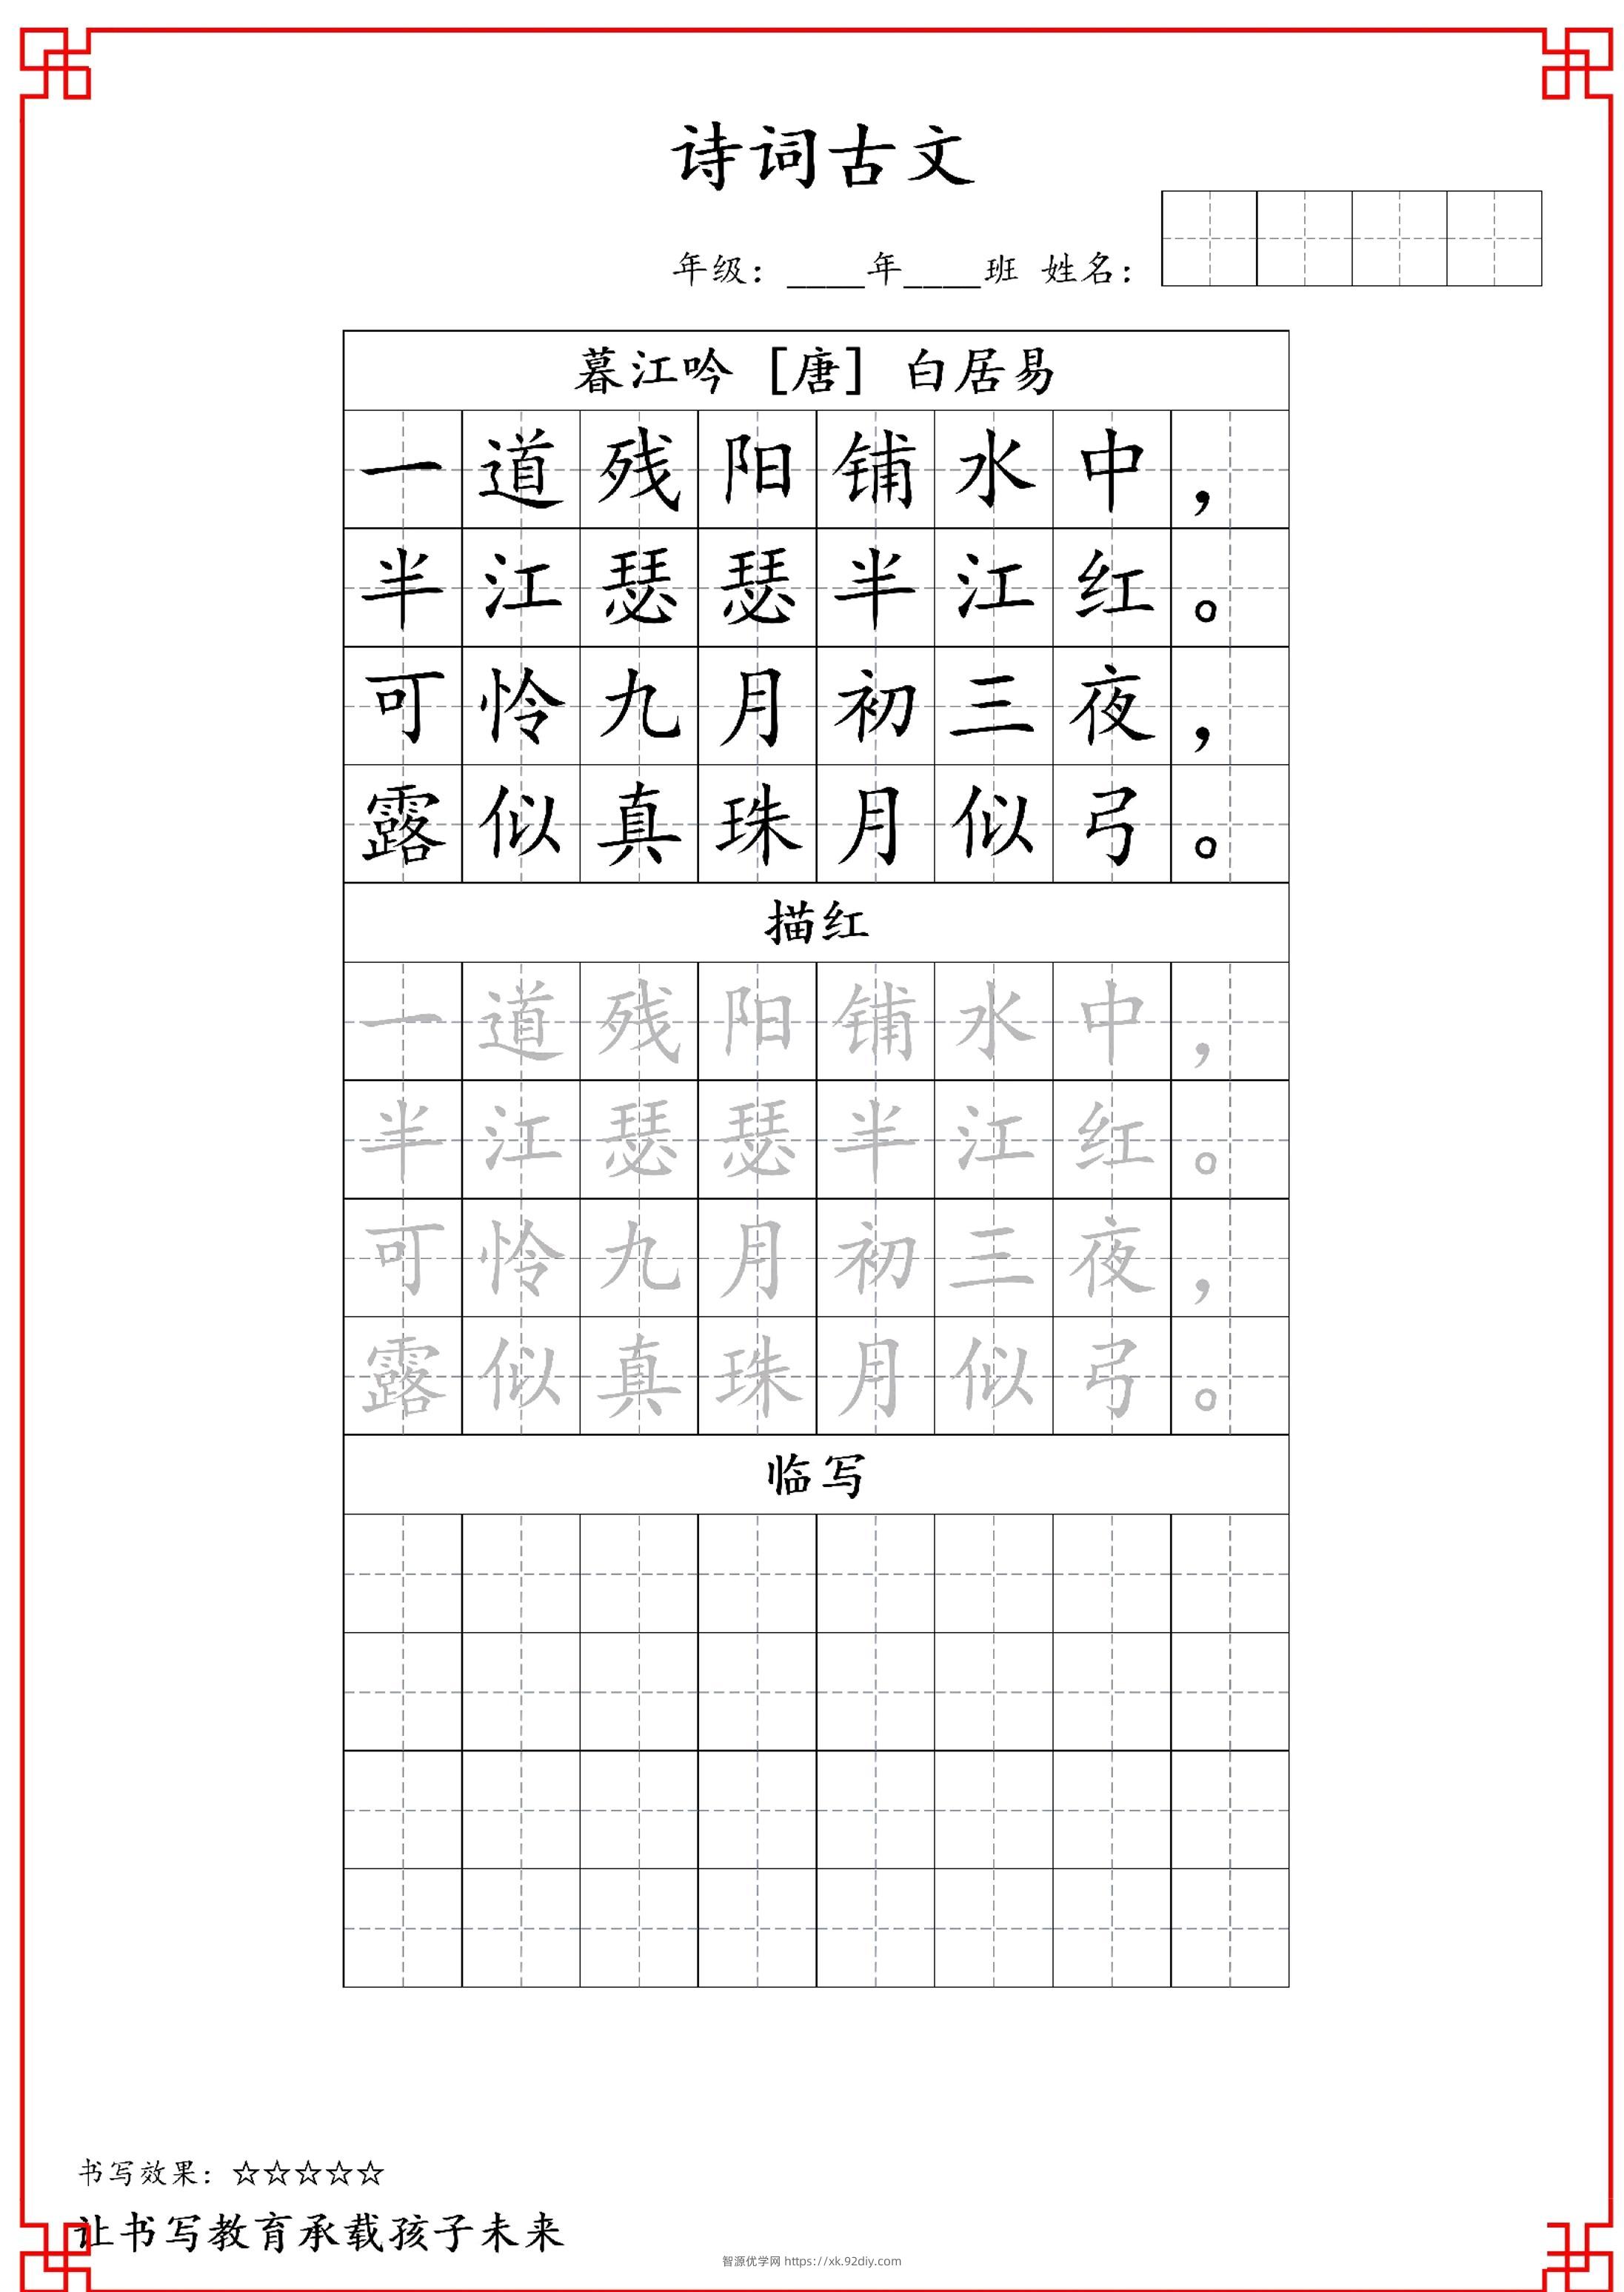 诗词古文
年级：____年____班 姓名：
暮江吟 [唐] 白居易
一道残阳铺水中，
半江瑟瑟半江红。
可怜九月初三夜，
露似真珠月似弓。
描红
一道残阳铺水中，
半江瑟瑟半江红。
可怜九月初三夜，
露似真珠月似弓。
临写
书写效果：☆☆☆☆☆
让书写教育承载孩子未来
智源优学网 https://xk.92diy.com